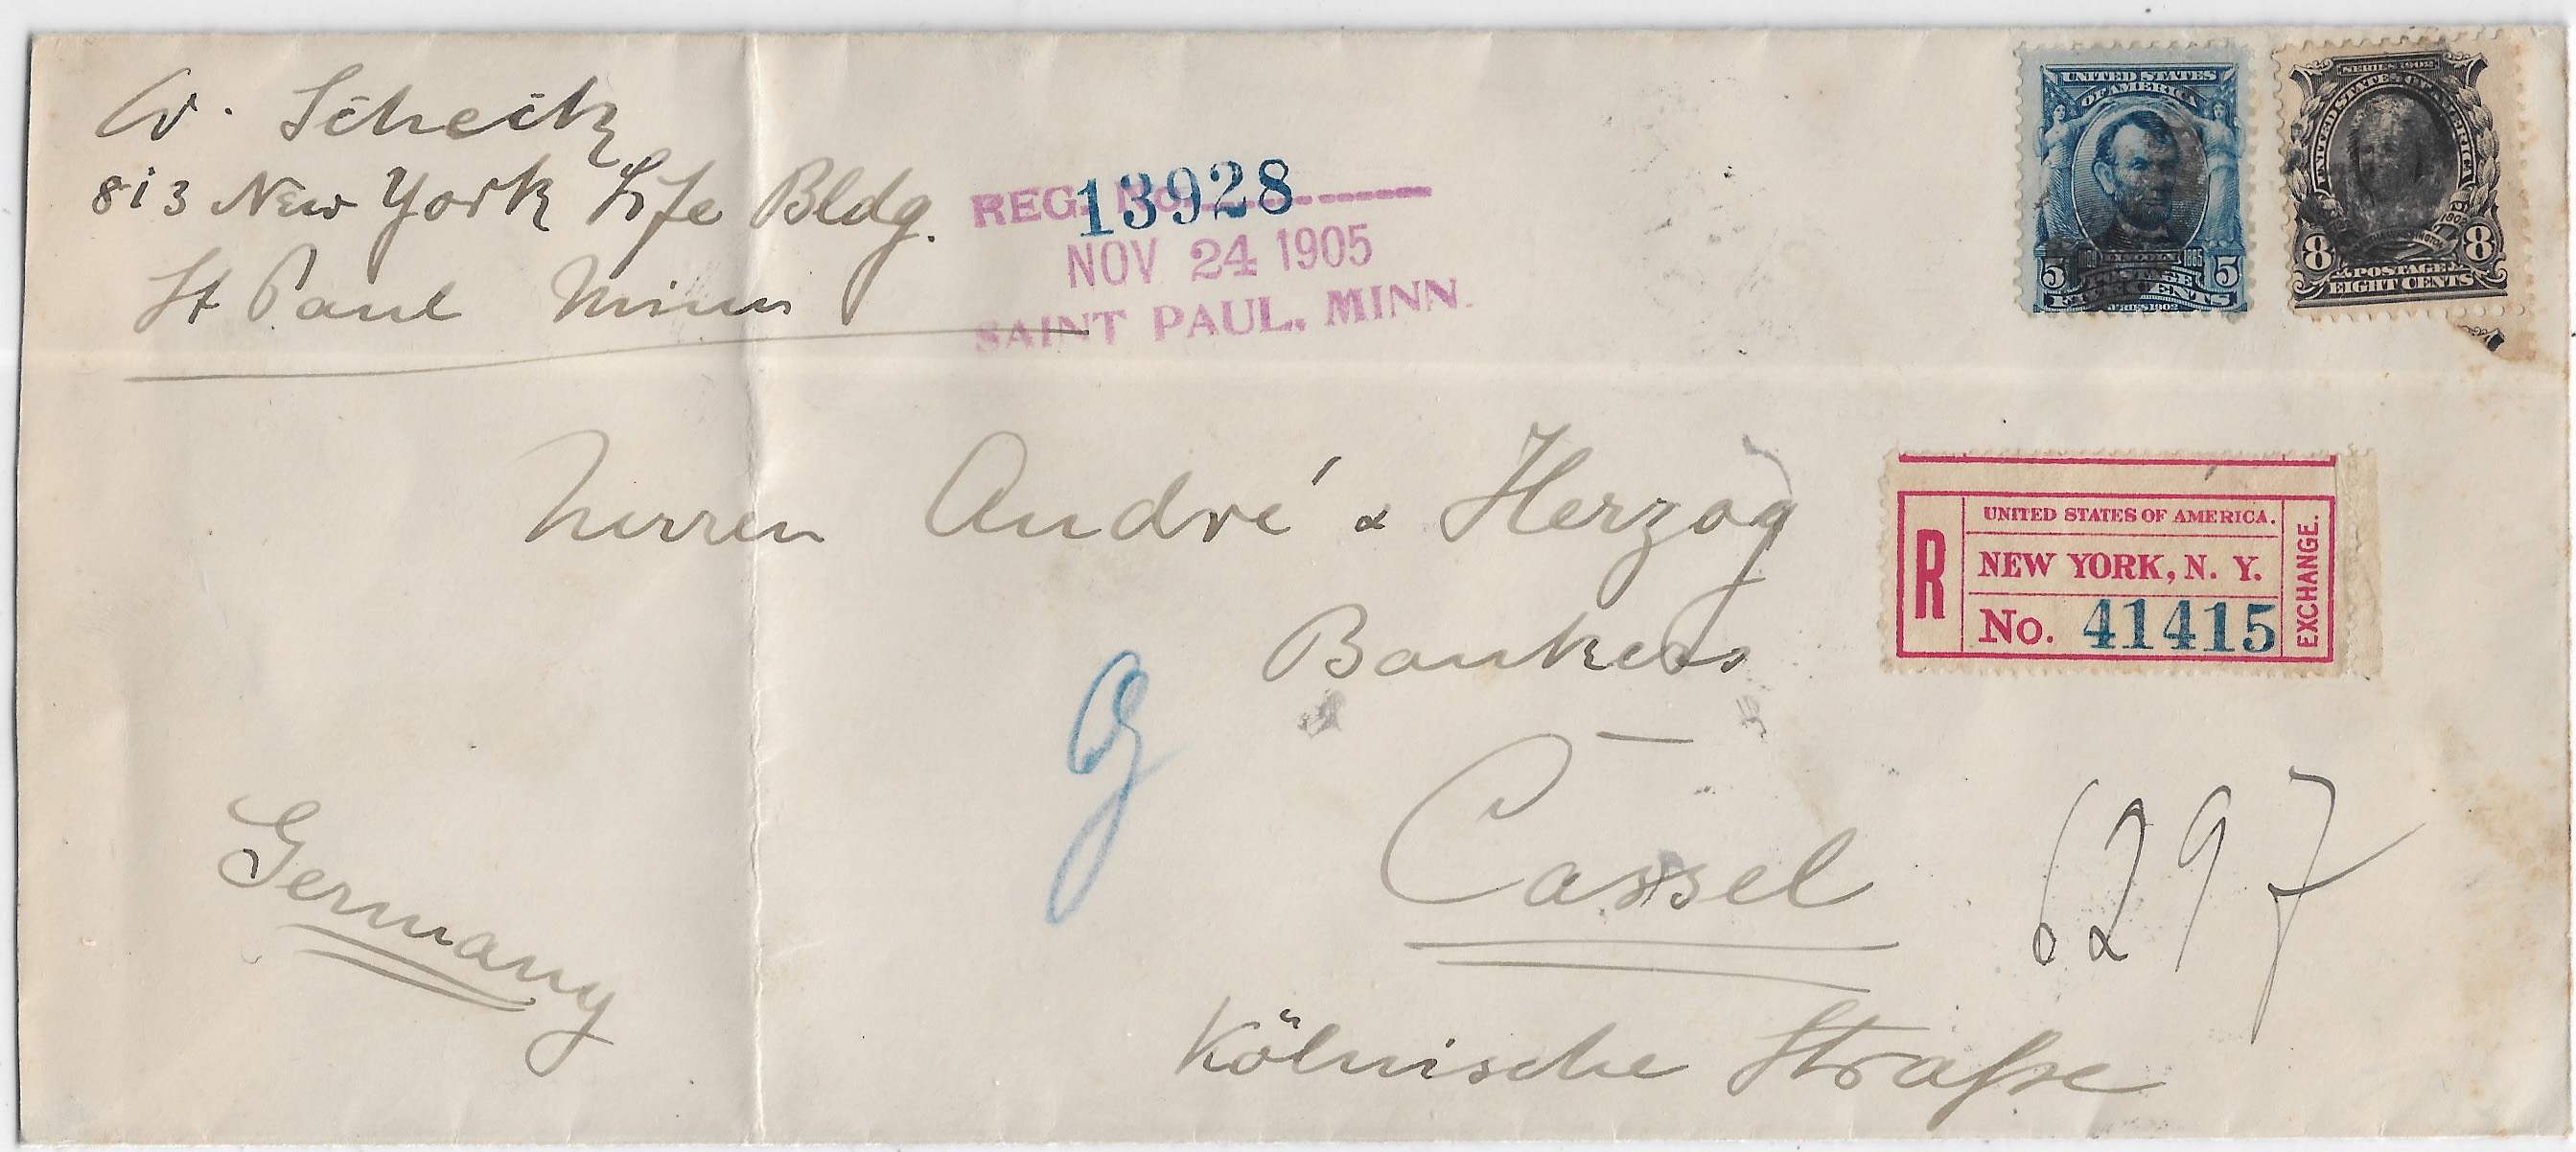 W. Scheitz
813 New York Life Bldg.
St Paul Minn
REG. No. 13928
NOV 24 1905
SAINT PAUL, MINN.
UNITED STATES
OF AMERICA
5 POSTAGE 5
CENTS
SERIES 1902
SERIES 1902
UNITED STATES OF AMERICA
1902
8 POSTAGE 8
EIGHT CENTS
Herren André & Herzog
Bankers
Cassel
Kölnische Straße
Germany
R
UNITED STATES OF AMERICA.
NEW YORK, N. Y.
No. 41415
EXCHANGE.
6297